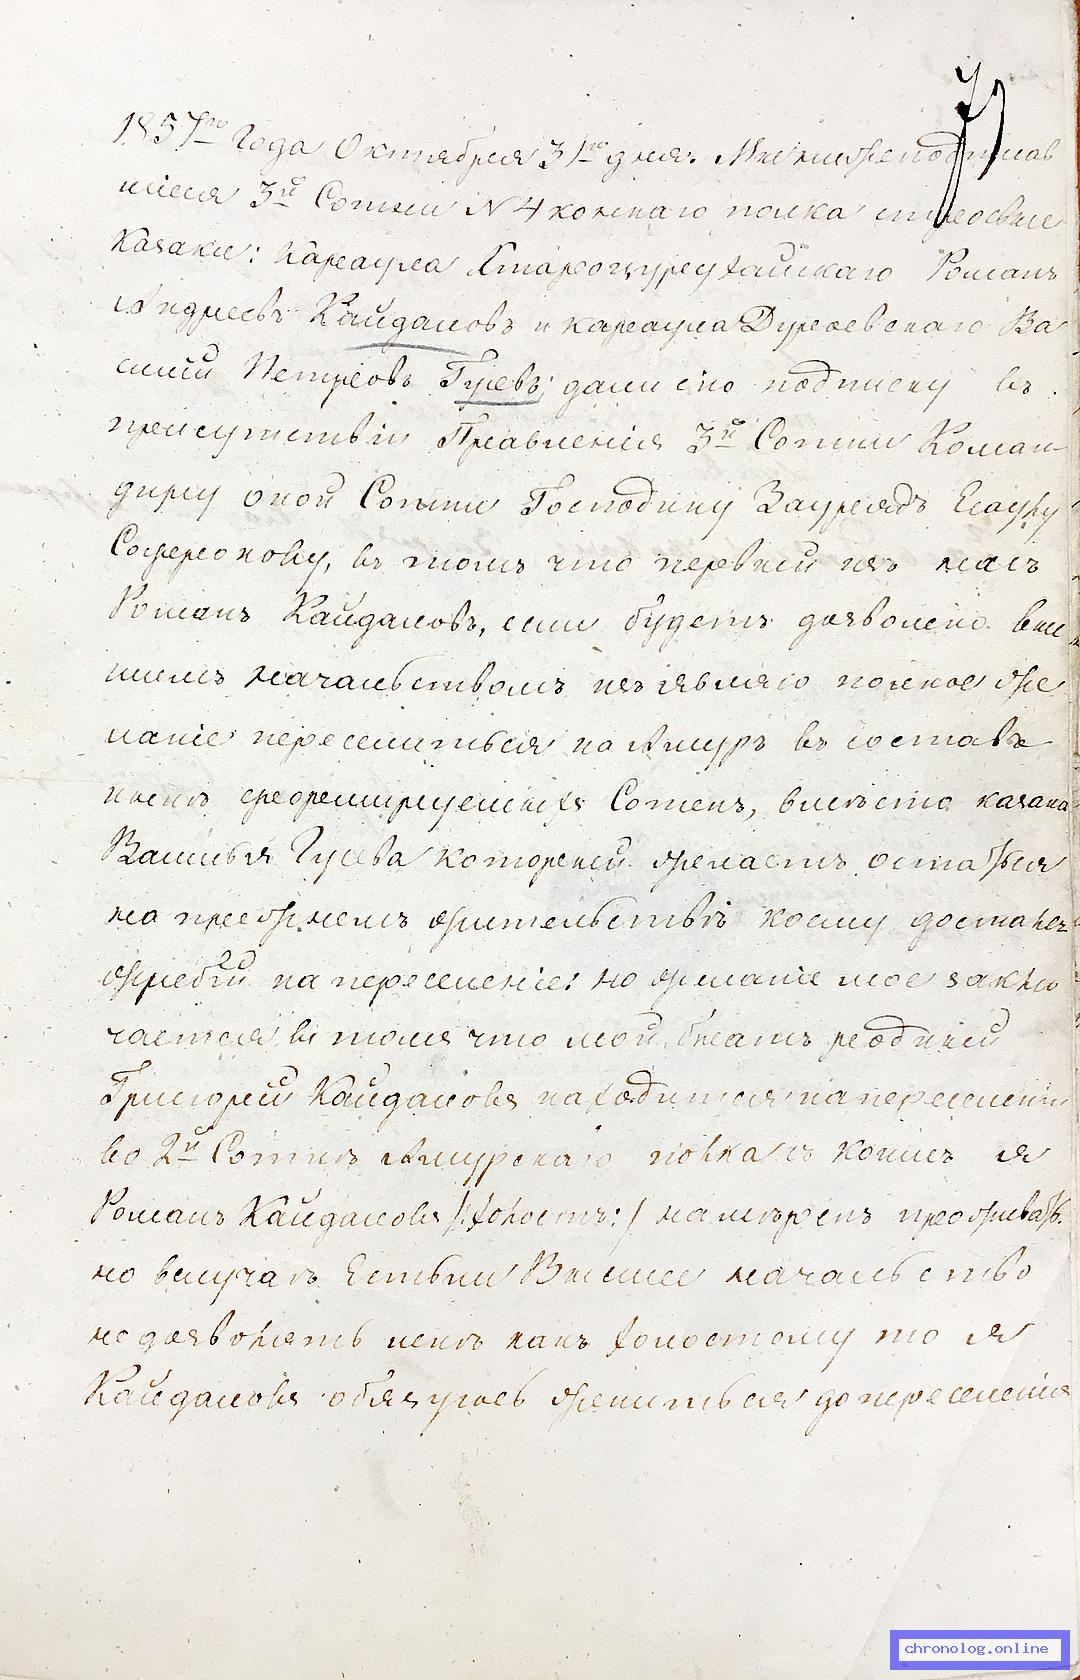 1857го Года Октября 31го дня. Мы нижеподписав
шіеся 3й Сотни N 4 коннаго полка строевые
казаки: Караула Староцурухайтскаго Романъ
Андреевъ Кайдаловъ и караула Дуроевскаго Ва
силій Петровъ Гусевъ; дали сію подписку въ
присутствіи Правленія 3й Сотни Коман-
диру оной Сотни Господину Зауредъ Есаулу
Сафронову, въ томъ что первый изъ насъ
Романъ Кайдаловъ, если будетъ дозволено выс
шемъ начальствомъ изъявляю полное же
ланіе переселиться на Амуръ въ составъ
нынѣ сформируемыхъ Сотенъ, вмѣсто казака
Василья Гусева который желаетъ остаться
на прежнемъ жительствѣ коему достался
жребій на переселеніе: но желаніе мое заклю
чается въ томъ что мой братъ родный
Григорій Кайдаловъ находится на переселеніи
во 2й Сотнѣ Амурскаго полка съ коимъ я
Романъ Кайдаловъ /:холостъ:/ намѣренъ проживать.
но вслучаѣ Естьли Высшее начальство
не дозволитъ мнѣ какъ холостому то я
Кайдаловъ обязуюсь жениться до переселенія
chronolog.online